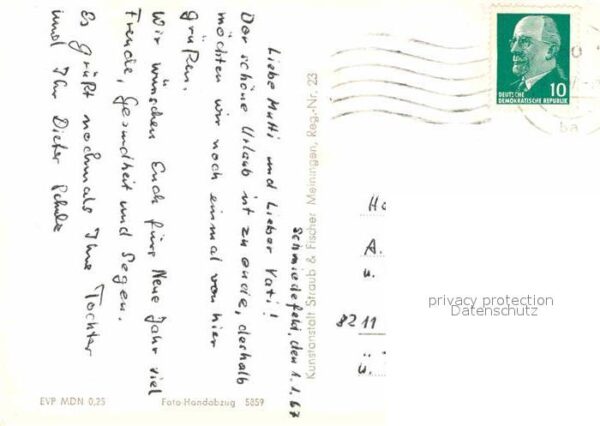 Schmiedefeld, den 1.1.67
Liebe Mutti und Lieber Vati!
Der schöne Urlaub ist zu ende, deshalb
möchten wir noch einmal von hier
grüßen.
Wir wünschen Euch fürs Neue Jahr viel
Freude, Gesundheit und Segen.
Es grüßt nochmals Ihre Tochter
und Ihr Dieter Schulz
Kunstanstalt Straub & Fischer Meiningen, Reg-Nr. 23
EVP MDN 0,25
Foto-Handabzug 5859
10
DEUTSCHE
DEMOKRATISCHE REPUBLIK
A.
u.
privacy protection
Datenschutz
8211
ü.